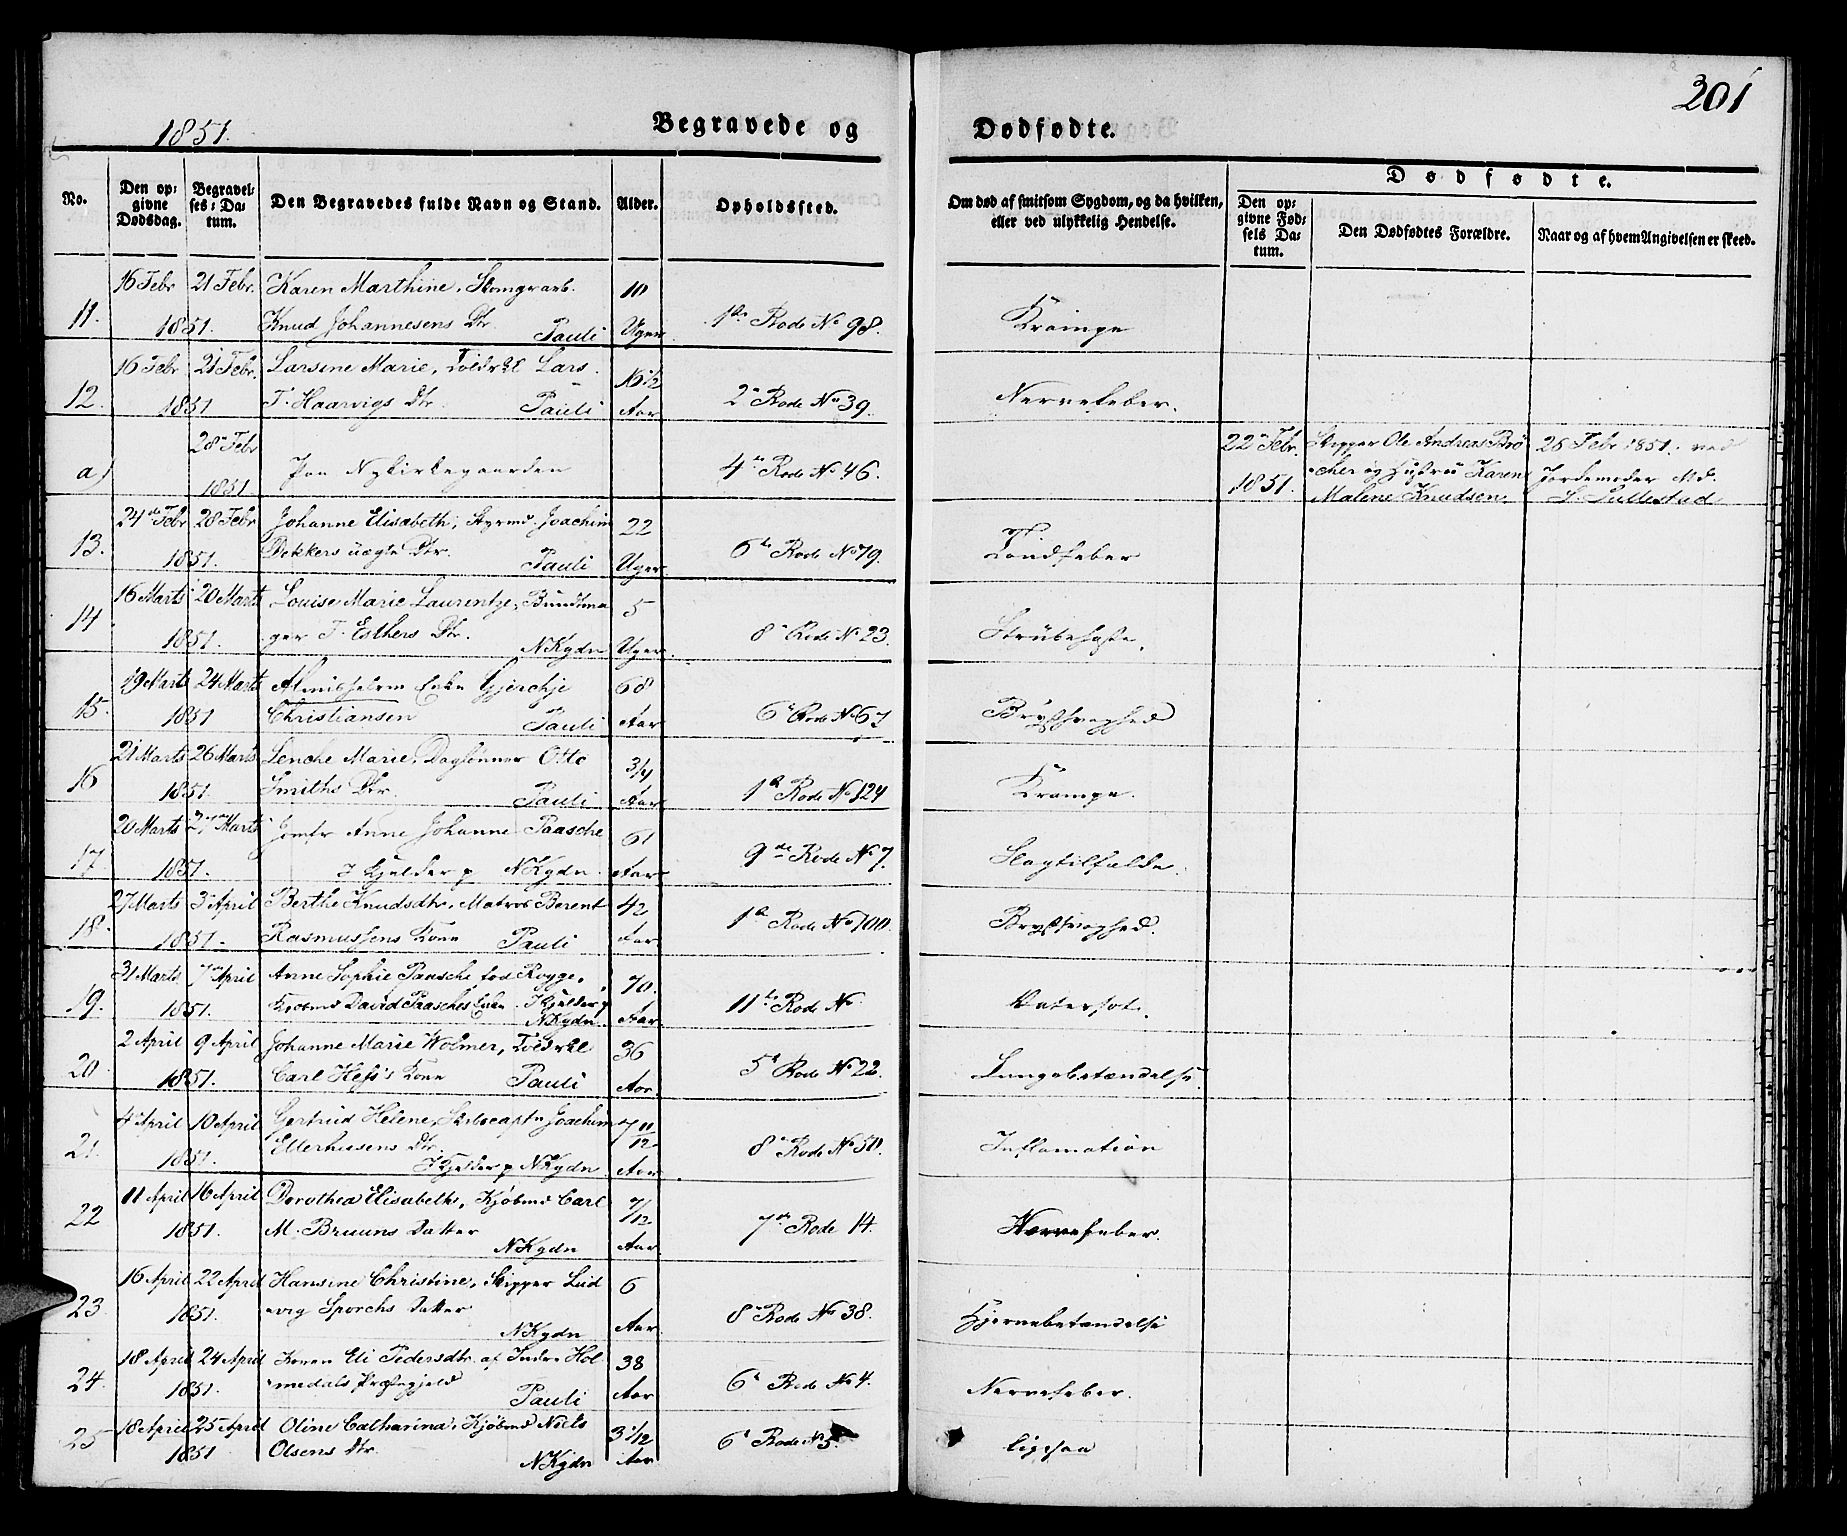 201
1851.
Begravede og Dødfødte.
No.
Den opgivne Dødsdag.
Begravelses-Datum.
Den Begravedes fulde Navn og Stand.
Alder.
Opholdssted.
Om død af smitsom Sygdom, og da hvilken, eller ved ulykkelig Hendelse.
Dødfødte.
Den opgivne Fødsels Datum.
Den Dødfødtes Forældre.
Naar og af hvem Angivelsen er skeed.
16 Febr 21 Febr. Karen Marthine, 10
11. 1851. Knud Johannesens Dtr. Pauli Uger 1ste Rode No 98. Krampe
16 Febr 21 Febr. Larsine Marie, Lars
12. 1851 T. Haarvigs Dtr. Pauli Aar 2 Rode No 39. Nervefeber.
28 Febr
a) 1851 Paa Nykirkegaarden 4 Rode No 46.
22 Febr. 1851. Skipper Ole Andreas
og Hustru Karen
Malene Knudsen
Febr 1851. ved
Jordemoder Md.
24 Febr 28 Febr Johanne Elisabeth, Styrmd. Joachim 22
13. 1851. Dekkers uægte Dtr. Pauli Uger 6 Rode No 79. Tandfeber
16 Marts 20 Marts Louise Marie Laurentze, Bundtma 5
14 1851. ger T. Esthers Dtr. NKgdn Uger 8 Rode No 23. Strubehoste.
19 Marts 24 Marts Almishslem Enke 68
15. 1851 Christiansen Pauli Aar 6 Rode No 67 Brystsvaghed
21 Marts 26 Marts Lenche Marie, Daglønner Otto 3/4
16 1851. Smiths Dtr. Pauli Aar 1 Rode No 124 Krampe.
20 Marts Marts Jomfr Anne Johanne Paasche 61
17 1851. I Kjelder p NKgdn. Aar 9de Rode No 7. Slagtilfælde.
27 Marts 3 April Berthe Knudsdtr, Matros Berent 42
18. 1851. Rasmussens Kone Pauli Aar 1 Rode No 100 Brystsvaghed.
31 Marts 7 April Anne Sophie Paasche fød Rogge, 70.
19. 1851. Kjøbmd David Paasches Enke. I Kjelder p NKgdn. Aar 11te Rode No Vatersot.
2 April 9 April Johanne Marie Wolmer, 36
20 1851. Carl Hess's Kone Pauli Aar 5 Rode No 22. Lungebetændelse.
4 April 10 April Gertrud Helene, Skibscaptn Joachim 7 11/12
21. 1851. Ellerhusens Dtr. I Kjelder p NKgdn Aar 8 Rode No 50. Inflamation
11 April 16 April Dorothea Elisabeth, Kjøbmd Carl 7/12
22 1851. M. Bruuns Datter NKgdn Aar 7de Rode 14. Nervefeber.
16 April 22 April Hansine Christine, Skipper Lud 6
23 1851. vig Sporchs Datter NKgdn Aar 8 Rode No 38. Hjernebetændelse
18 April 24 April Karen Eli Pedersdtr. af Indre Hol 38
24. 1851. medals Præstegjeld Pauli Aar 6 Rode No 4. Nervefeber.
18 April 25 April Oline Catharina, Kjøbmd Niels 3 1/12
25 1851 Olsens Dtr. NKgdn Aar 6 Rode No 5. ligesaa